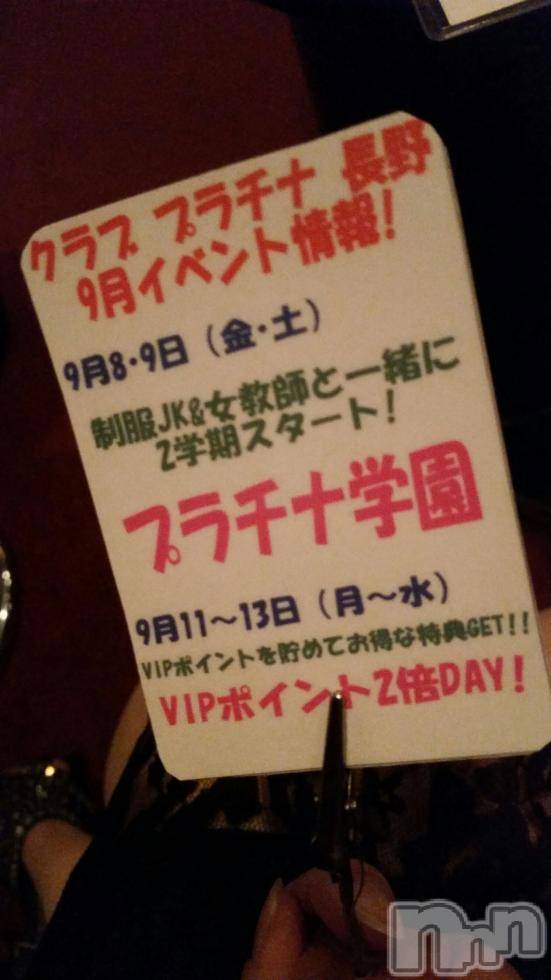 クラブ プラチナ 長野
9月イベント情報!
9月8・9日(金・土)
制服JK&女教師と一緒に
2学期スタート!
プラチナ学園
9月11~13日(月~水)
VIPポイントを貯めてお得な特典GET!!
VIPポイント2倍DAY!
nnn